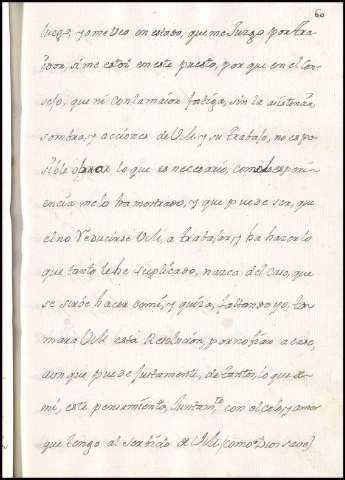 60
luego, y ome veo en estado, que me Juzgo por tra
idor, si me estoi en este puesto, por que en el Con
sejo, que ni con la maior fatiga, sin la asistencia
sombra, y acciones de V.M. y su trabajo, no es po
sible obrar lo que es necesario, como la experi
encia me lo ha mostrado, y que puede ser, que
el no reducirse V.M. a trabajar, y ha hacerlo
que tanto le he suplicado, nazca del caso, que
se sirbe hacer de mi, y quiza, faltando yo, to
mara V.M. esta Resolucion, por no fiar a caso,
aun que puede Justamente, de tanto, lo que de
mi, este pensamiento, Juntamte con el celo, y amor
que tengo al serbicio de V.M. (como Dios save)